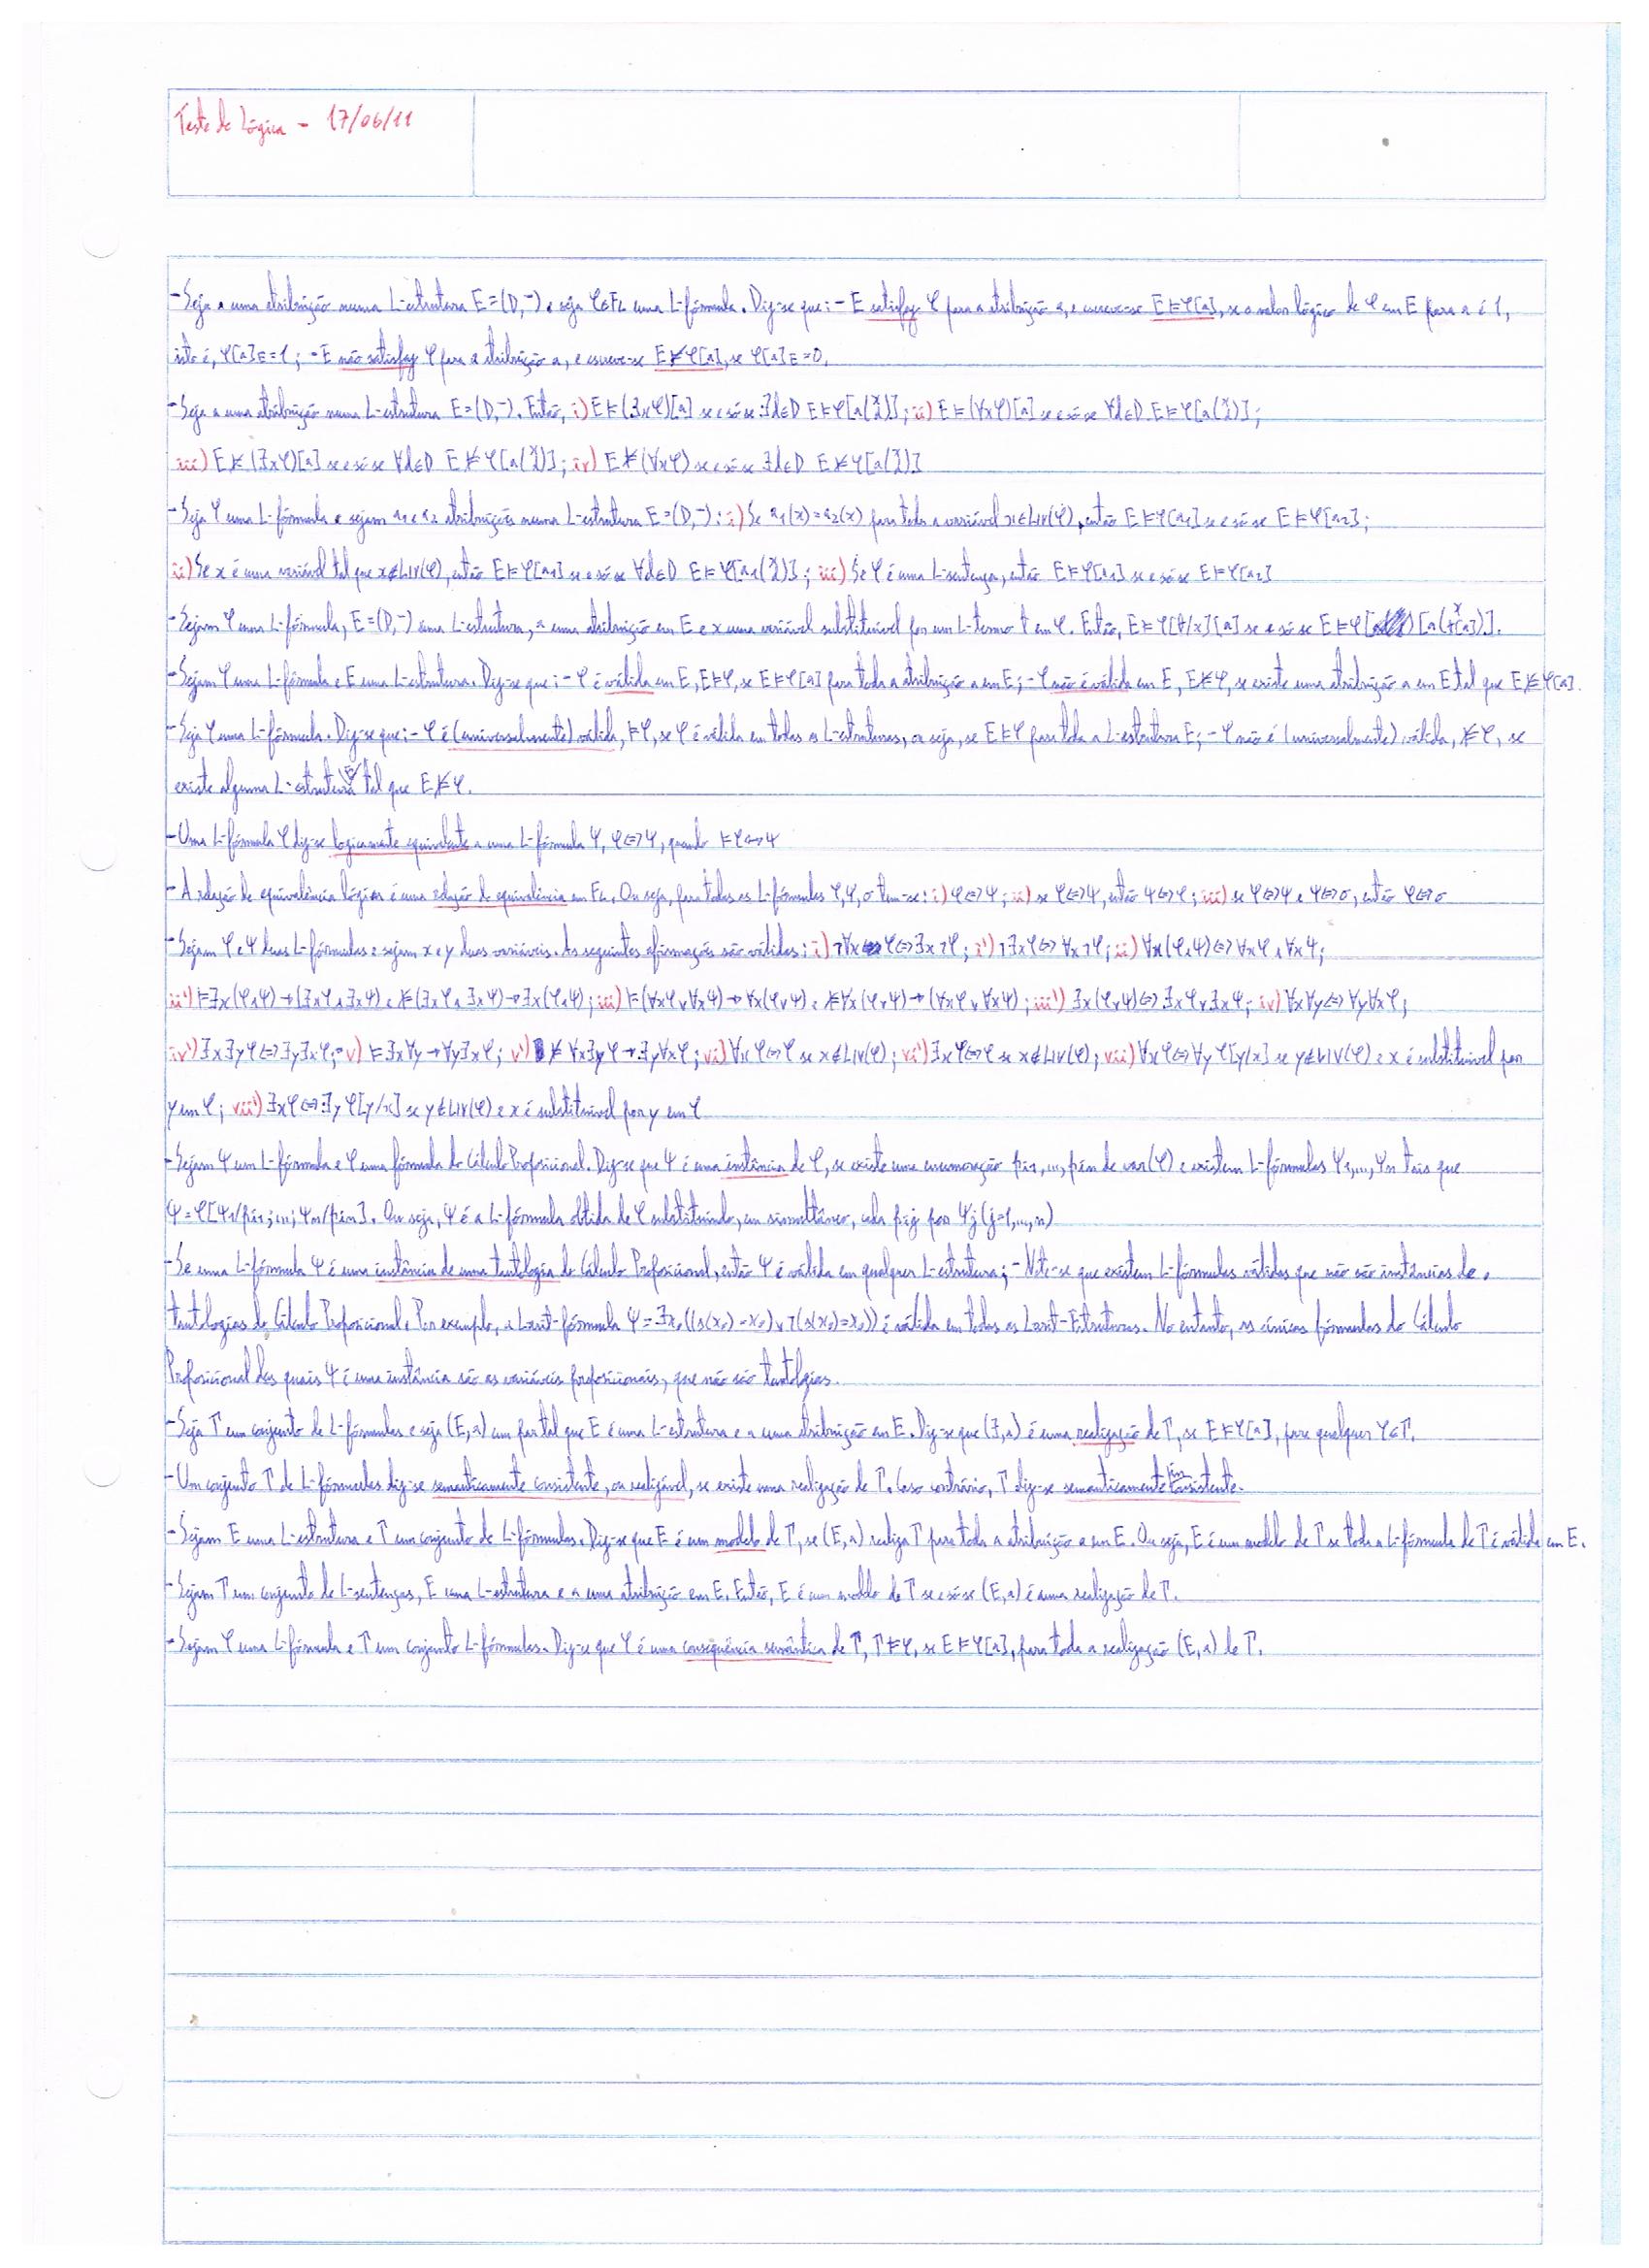 Teste de Lógica - 17/06/11
- Seja a uma atribuição numa L-estrutura E=(D,¯) e seja φ∈FL uma L-fórmula. Diz-se que: - E satisfaz φ para a atribuição a, e escreve-se E⊨φ[a], se o valor lógico de φ em E para a é 1,
isto é, φ[a]E=1; - E não satisfaz φ para a atribuição a, e escreve-se E⊭φ[a], se φ[a]E=0.
- Seja a uma atribuição numa L-estrutura E=(D,¯). Então, i) E⊨(∃xφ)[a] se e só se ∃d∈D E⊨φ[a(x d)]; ii) E⊨(∀xφ)[a] se e só se ∀d∈D E⊨φ[a(x d)];
iii) E⊭(∃xφ)[a] se e só se ∀d∈D E⊭φ[a(x d)]; iv) E⊭(∀xφ) se e só se ∃d∈D E⊭φ[a(x d)]
- Seja φ uma L-fórmula e sejam a1 e a2 atribuições numa L-estrutura E=(D,¯): i) Se a1(x)=a2(x) para toda a variável x∈LIV(φ), então E⊨φ[a1] se e só se E⊨φ[a2];
ii) Se x é uma variável tal que x∉LIV(φ), então E⊨φ[a1] se e só se ∀d∈D E⊨φ[a1(x d)]; iii) Se φ é uma L-sentença, então E⊨φ[a1] se e só se E⊨φ[a2]
- Sejam φ uma L-fórmula, E=(D,¯) uma L-estrutura, a uma atribuição em E e x uma variável substituível por um L-termo t em φ. Então, E⊨φ[t/x][a] se e só se E⊨φ[a(x t[a])].
- Sejam φ uma L-fórmula e E uma L-estrutura. Diz-se que: - φ é válida em E, E⊨φ, se E⊨φ[a] para toda a atribuição a em E; - φ não é válida em E, E⊭φ, se existe uma atribuição a em E tal que E⊭φ[a].
- Seja φ uma L-fórmula. Diz-se que: - φ é (universalmente) válida, ⊨φ, se φ é válida em todas as L-estruturas, ou seja, se E⊨φ para toda a L-estrutura E; - φ não é (universalmente) válida, ⊭φ, se
existe alguma L-estrutura E tal que E⊭φ.
- Uma L-fórmula φ diz-se logicamente equivalente a uma L-fórmula ψ, φ⇔ψ, quando ⊨φ↔ψ
- A relação de equivalência lógica é uma relação de equivalência em FL. Ou seja, para todas as L-fórmulas φ,ψ,σ tem-se: i) φ⇔ψ; ii) se φ⇔ψ, então ψ⇔φ; iii) se φ⇔ψ e ψ⇔σ, então φ⇔σ
- Sejam φ e ψ duas L-fórmulas e sejam x e y duas variáveis. As seguintes afirmações são válidas: i) ¬∀xφ⇔∃x¬φ; i') ¬∃xφ⇔∀x¬φ; ii) ∀x(φ∧ψ)⇔∀xφ∧∀xψ;
ii') ⊨∃x(φ∧ψ)→(∃xφ∧∃xψ) e ⊭(∃xφ∧∃xψ)→∃x(φ∧ψ); iii) ⊨(∀xφ∨∀xψ)→∀x(φ∨ψ) e ⊭∀x(φ∨ψ)→(∀xφ∨∀xψ); iii') ∃x(φ∨ψ)⇔∃xφ∨∃xψ; iv) ∀x∀y⇔∀y∀xφ;
iv') ∃x∃yφ⇔∃y∃xφ; v) ⊨∃x∀y→∀y∃xφ; v') ⊭∀x∃yφ→∃y∀xφ; vi) ∀xφ⇔φ se x∉LIV(φ); vi') ∃xφ⇔φ se x∉LIV(φ); vii) ∀xφ⇔∀yφ[y/x] se y∉LIV(φ) e x é substituível por
y em φ; vii') ∃xφ⇔∃yφ[y/x] se y∉LIV(φ) e x é substituível por y em φ
- Sejam ψ um L-fórmula e φ uma fórmula do Cálculo Proposicional. Diz-se que ψ é uma instância de φ, se existe uma enumeração pi1,...,pin de var(φ) e existem L-fórmulas ψ1,...,ψn tais que
ψ=φ[ψ1/pi1;...;ψn/pin]. Ou seja, ψ é a L-fórmula obtida de φ substituindo, em simultâneo, cada pij por ψj (j=1,...,n)
- Se uma L-fórmula ψ é uma instância de uma tautologia do Cálculo Proposicional, então ψ é válida em qualquer L-estrutura; - Note-se que existem L-fórmulas válidas que não são instâncias de
tautologias do Cálculo Proposicional. Por exemplo, a Larit-fórmula ψ=∃x0((s(x0)=x0)∨¬(s(x0)=x0)) é válida em todas as Larit-Estruturas. No entanto, as únicas fórmulas do Cálculo
Proposicional das quais ψ é uma instância são as variáveis proposicionais, que não são tautologias.
- Seja Γ um conjunto de L-fórmulas e seja (E,a) um par tal que E é uma L-estrutura e a uma atribuição em E. Diz-se que (E,a) é uma realização de Γ, se E⊨φ[a], para qualquer φ∈Γ.
- Um conjunto Γ de L-fórmulas diz-se semanticamente consistente, ou realizável, se existe uma realização de Γ. Caso contrário, Γ diz-se semanticamente inconsistente.
- Sejam E uma L-estrutura e Γ um conjunto de L-fórmulas. Diz-se que E é um modelo de Γ, se (E,a) realiza Γ para toda a atribuição a em E. Ou seja, E é um modelo de Γ se toda a L-fórmula de Γ é válida em E.
- Sejam Γ um conjunto de L-sentenças, E uma L-estrutura e a uma atribuição em E. Então, E é um modelo de Γ se e só se (E,a) é uma realização de Γ.
- Sejam φ uma L-fórmula e Γ um conjunto L-fórmulas. Diz-se que φ é uma consequência semântica de Γ, Γ⊨φ, se E⊨φ[a], para toda a realização (E,a) de Γ.